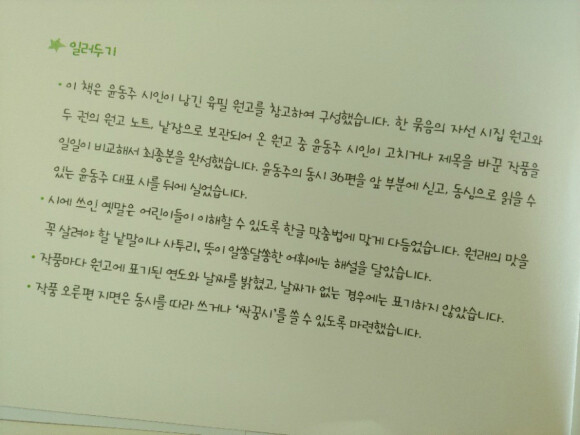 일러두기
• 이 책은 윤동주 시인이 남긴 육필 원고를 참고하여 구성했습니다. 한 묶음의 자선 시집 원고와
두 권의 원고 노트, 낱장으로 보관되어 온 원고 중 윤동주 시인이 고치거나 제목을 바꾼 작품을
일일이 비교해서 최종본을 완성했습니다. 윤동주의 동시 36편을 앞 부분에 싣고, 동심으로 읽을 수
있는 윤동주 대표 시를 뒤에 실었습니다.
• 시에 쓰인 옛말은 어린이들이 이해할 수 있도록 한글 맞춤법에 맞게 다듬었습니다. 원래의 맛을
꼭 살려야 할 낱말이나 사투리, 뜻이 알쏭달쏭한 어휘에는 해설을 달았습니다.
• 작품마다 원고에 표기된 연도와 날짜를 밝혔고, 날짜가 없는 경우에는 표기하지 않았습니다.
• 작품 오른편 지면은 동시를 따라 쓰거나 '짝꿍시'를 쓸 수 있도록 마련했습니다.